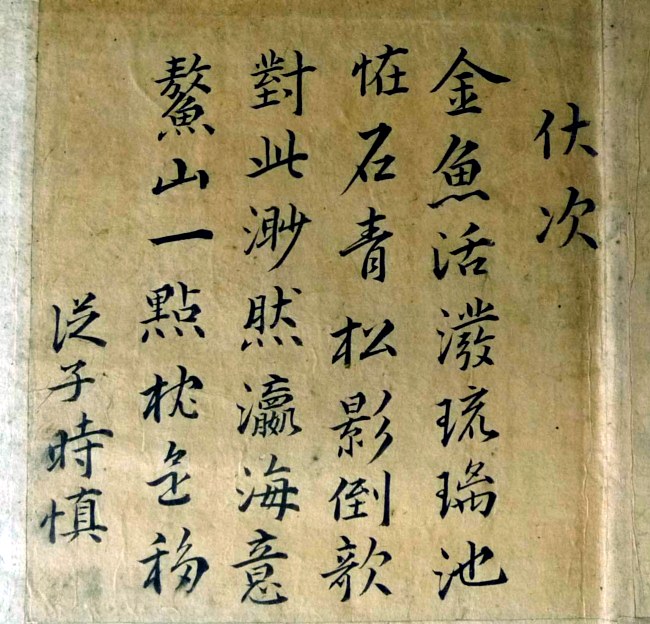 伏次
金魚活潑琉璃池
恠石青松影倒欹
對此渺然瀛海意
鰲山一點枕邊移
從子時愼